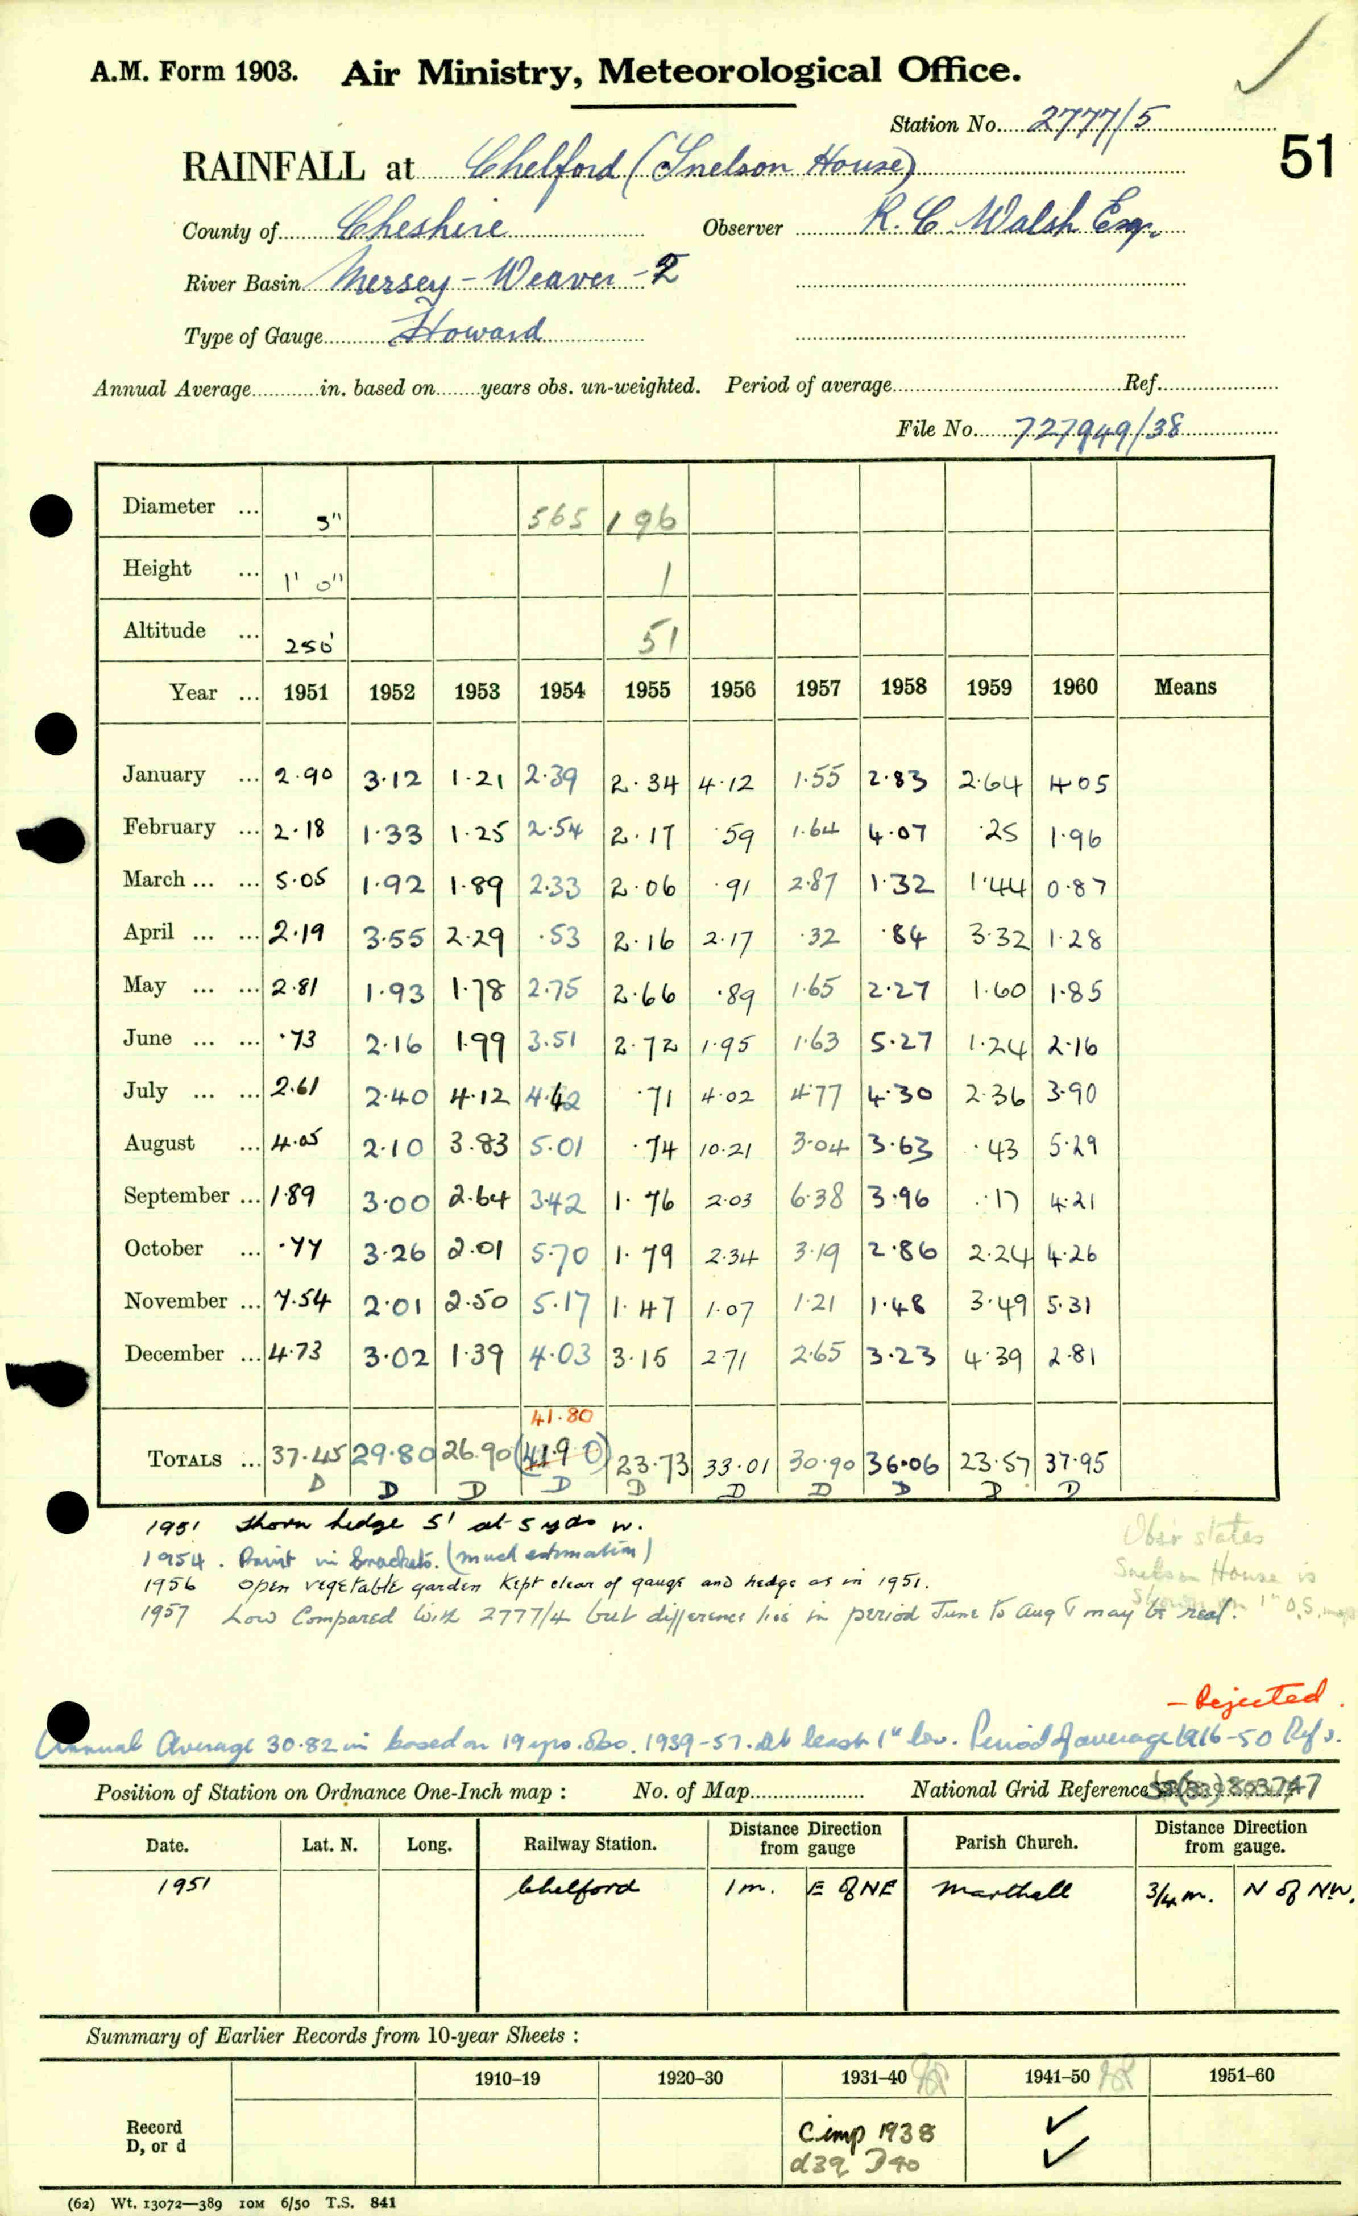 A.M. Form 1903. Air Ministry, Meteorological Office.
Station No. 2777/5
51
RAINFALL at Chelford (Snelson House)
County of Cheshire Observer R. C. Walsh Esq.
River Basin Mersey - Weaver - 2
Type of Gauge Howard
Annual Average in. based on years obs. un-weighted. Period of average Ref.
File No. 727949/38
Diameter ... 5" 565 196
Height ... 1' 0" 1
Altitude ... 250' 51
Year ... 1951 1952 1953 1954 1955 1956 1957 1958 1959 1960 Means
January ... 2.90 3.12 1.21 2.39 2.34 4.12 1.55 2.83 2.64 4.05
February ... 2.18 1.33 1.25 2.54 2.17 .59 1.64 4.07 .25 1.96
March ... ... 5.05 1.92 1.89 2.33 2.06 .91 2.87 1.32 1.44 0.87
April ... ... 2.19 3.55 2.29 .53 2.16 2.17 .32 .84 3.32 1.28
May ... ... 2.81 1.93 1.78 2.75 2.66 .89 1.65 2.27 1.60 1.85
June ... ... .73 2.16 1.99 3.51 2.72 1.95 1.63 5.27 1.24 2.16
July ... ... 2.61 2.40 4.12 4.42 .71 4.02 4.77 4.30 2.36 3.90
August ... 4.05 2.10 3.83 5.01 .74 10.21 3.04 3.63 .43 5.29
September ... 1.89 3.00 2.64 3.42 1.76 2.03 6.38 3.96 .17 4.21
October ... .77 3.26 2.01 5.70 1.79 2.34 3.19 2.86 2.24 4.26
November ... 7.54 2.01 2.50 5.17 1.47 1.07 1.21 1.48 3.49 5.31
December ... 4.73 3.02 1.39 4.03 3.15 2.71 2.65 3.23 4.39 2.81
41.80
TOTALS ... 37.45 29.80 26.90 (41.90) 23.73 33.01 30.90 36.06 23.57 37.95
D D D D D D D D D D
1951 Thorn hedge 5' at 5 yds W.
1954. Print in brackets. (much estimation)
1956 Open vegetable garden kept clear of gauge and hedge as in 1951.
1957 Low compared with 2777/4 but difference lies in period June to Aug & may be real.
Obsr states
Snelson House is
shown on 1" O.S. map
- Rejected.
Annual Average 30.82 in based on 19 yrs. obs. 1939-57. At least 1" low. Period of average 1916-50 Ref s.
Position of Station on Ordnance One-Inch map : No. of Map National Grid Reference 803747
Date. Lat. N. Long. Railway Station. Distance from Direction gauge Parish Church. Distance from Direction gauge.
1951 Chelford 1 m. E of NE Marthall 3/4 m. N of NW.
Summary of Earlier Records from 10-year Sheets :
1910–19 1920–30 1931–40 1941–50 1951–60
Record
D, or d
Cimp 1938 ✓
d39 D40 ✓
(62) Wt. 13072—389 10M 6/50 T.S. 841